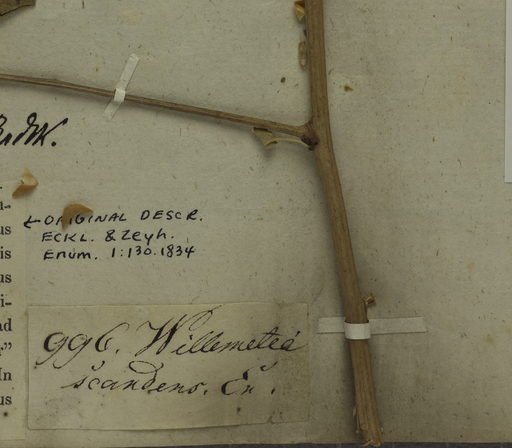 us
is
us
i-
ad
"
In
us
← ORIGINAL DESCR.
ECKL. & Zeyh.
Enum. 1:130.1834
996. Willemetia
scandens. En.